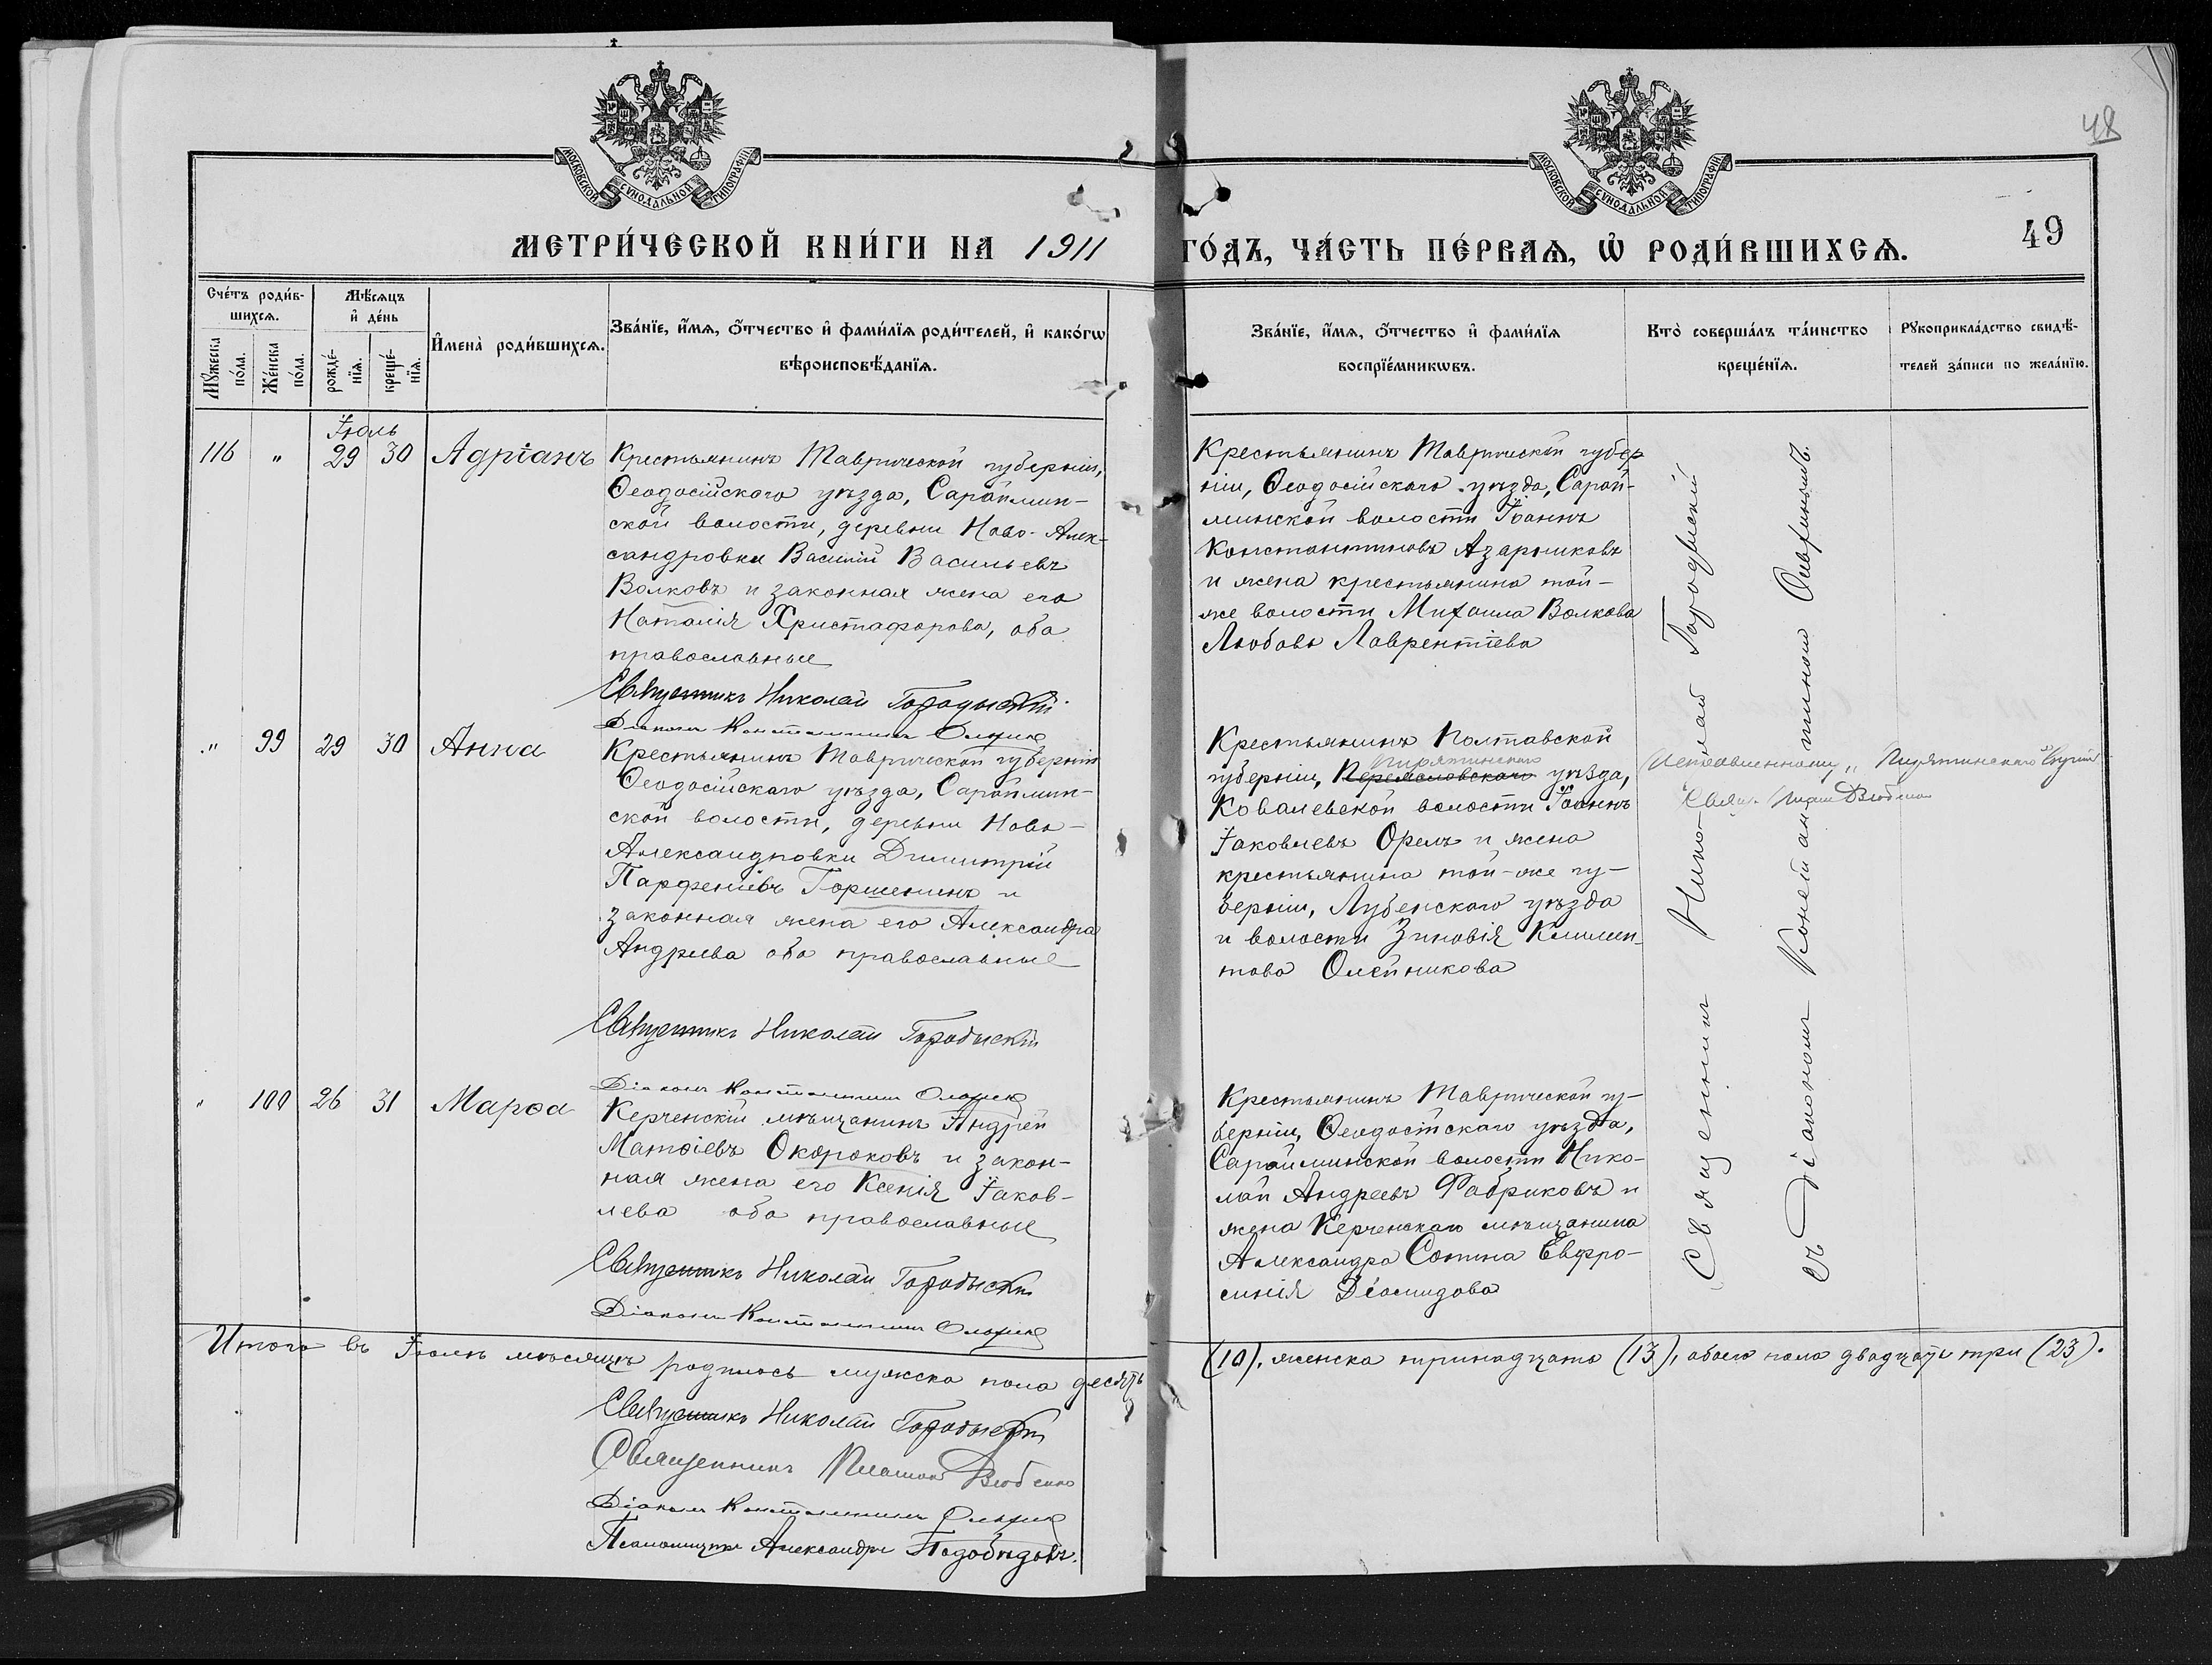 48
МОСКОВСКОЙ СѴНОДАЛЬНОЙ ТИПОГРАФІИ.
МОСКОВСКОЙ СѴНОДАЛЬНОЙ ТИПОГРАФІИ.
МЕТРИ́ЧЕСКОЙ КНИ́ГИ НА 1911
ГО́ДЪ, ЧА́СТЬ ПЕ́РВАѦ, Ѡ҆ РОДИ́ВШИХСѦ.
49
Сче́тъ роди́в-
шихсѧ.
Мꙋ́жеска по́ла.
Же́нска по́ла.
Мѣ́сѧцъ
и҆ де́нь
рожде́-
нїѧ.
креще́-
нїѧ.
И҆мена̀ роди́вшихсѧ.
Зва́нїе, и҆́мѧ, ѻ҆́тчество и҆ фами́лїѧ роди́телей, и҆ како́гѡ
вѣроисповѣ́данїѧ.
Зва́нїе, и҆́мѧ, ѻ҆́тчество и҆ фами́лїѧ
воспрїе́мникѡвъ.
Кто̀ соверша́лъ та́инство
креще́нїѧ.
Рꙋкоприкла́дство свидѣ́-
телей за́писи по жела́нїю.
Іюль
116 " 29 30 Адріанъ
Крестьянинъ Таврической губерніи,
Ѳеодосійскаго уѣзда, Сараймин-
ской волости, деревни Ново-Алек-
сандровки Василій Васильевъ
Волковъ и законная жена его
Наталія Христафорова, оба
православные
Священникъ Николай Городыскій.
Діаконъ Константинъ
Крестьянинъ Таврической губер
ніи, Ѳеодосійскаго уѣзда, Сарай-
минской волости Іоаннъ
Константиновъ Азарниковъ
и жена крестьянина той-
же волости Михаила Волкова
Любовь Лаврентіева
" 99 29 30 Анна
Крестьянинъ Таврической губерніи
Ѳеодосійскаго уѣзда, Сараймин-
ской волости, деревни Ново-
Александровки Димитрій
Парфеніевъ Горшенинъ и
законная жена его Александра
Андреева оба православные
Священникъ Николай Городыскій
Діаконъ Константинъ
Крестьянинъ Полтавской
Пирятинскаго
губерніи, Переясловскаго уѣзда,
Ковалевской волости Іоаннъ
Іаковлевъ Орелъ и жена
крестьянина той-же гу-
берніи, Лубенскаго уѣзда
и волости Зиновія Климен-
това Олейникова
" Пирятинскаго"
" 100 26 31 Марѳа
Керченскій мѣщанинъ Андрей
Матѳіевъ Окороковъ и закон-
ная жена его Ксенія Іаков-
лева оба православные
Священникъ Николай Городыскій
Діаконъ Константинъ
Крестьянинъ Таврической гу-
берніи, Ѳеодосійскаго уѣзда,
Сарайминской волости Нико-
лай Андреевъ Фабриковъ и
жена Керченскаго мѣщанина
Александра Сотина Евфро-
синія Діомидова
Священникъ Николай Городыскій
съ Діакономъ Константиномъ
Итого въ Іюлѣ мѣсяцѣ родилось мужска пола десять
(10), женска тринадцать (13), обоего пола двадцать три (23).
Священникъ Николай Городыскій
Священникъ
Діаконъ Константинъ
Псаломщикъ Александръ Подобѣдовъ.